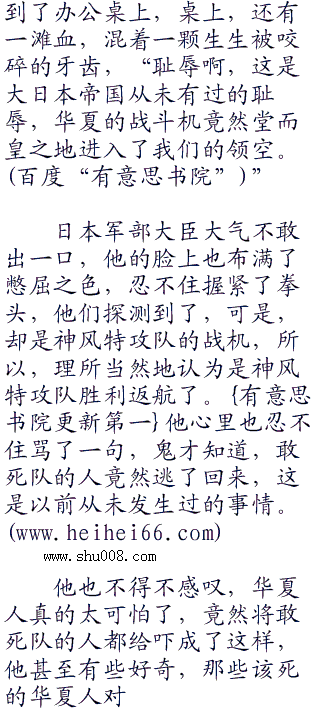 到了办公桌上，桌上，还有
一滩血，混着一颗生生被咬
碎的牙齿，“耻辱啊，这是
大日本帝国从未有过的耻
辱，华夏的战斗机竟然堂而
皇之地进入了我们的领空。
(百度“有意思书院”)”
日本军部大臣大气不敢
出一口，他的脸上也布满了
憋屈之色，忍不住握紧了拳
头，他们探测到了，可是，
却是神风特攻队的战机，所
以，理所当然地认为是神风
特攻队胜利返航了。{有意思
书院更新第一}他心里也忍不
住骂了一句，鬼才知道，敢
死队的人竟然逃了回来，这
是以前从未发生过的事情。
(www.heihei66.com)
www.shu008.com
他也不得不感叹，华夏
人真的太可怕了，竟然将敢
死队的人都给吓成了这样，
他甚至有些好奇，那些该死
的华夏人对